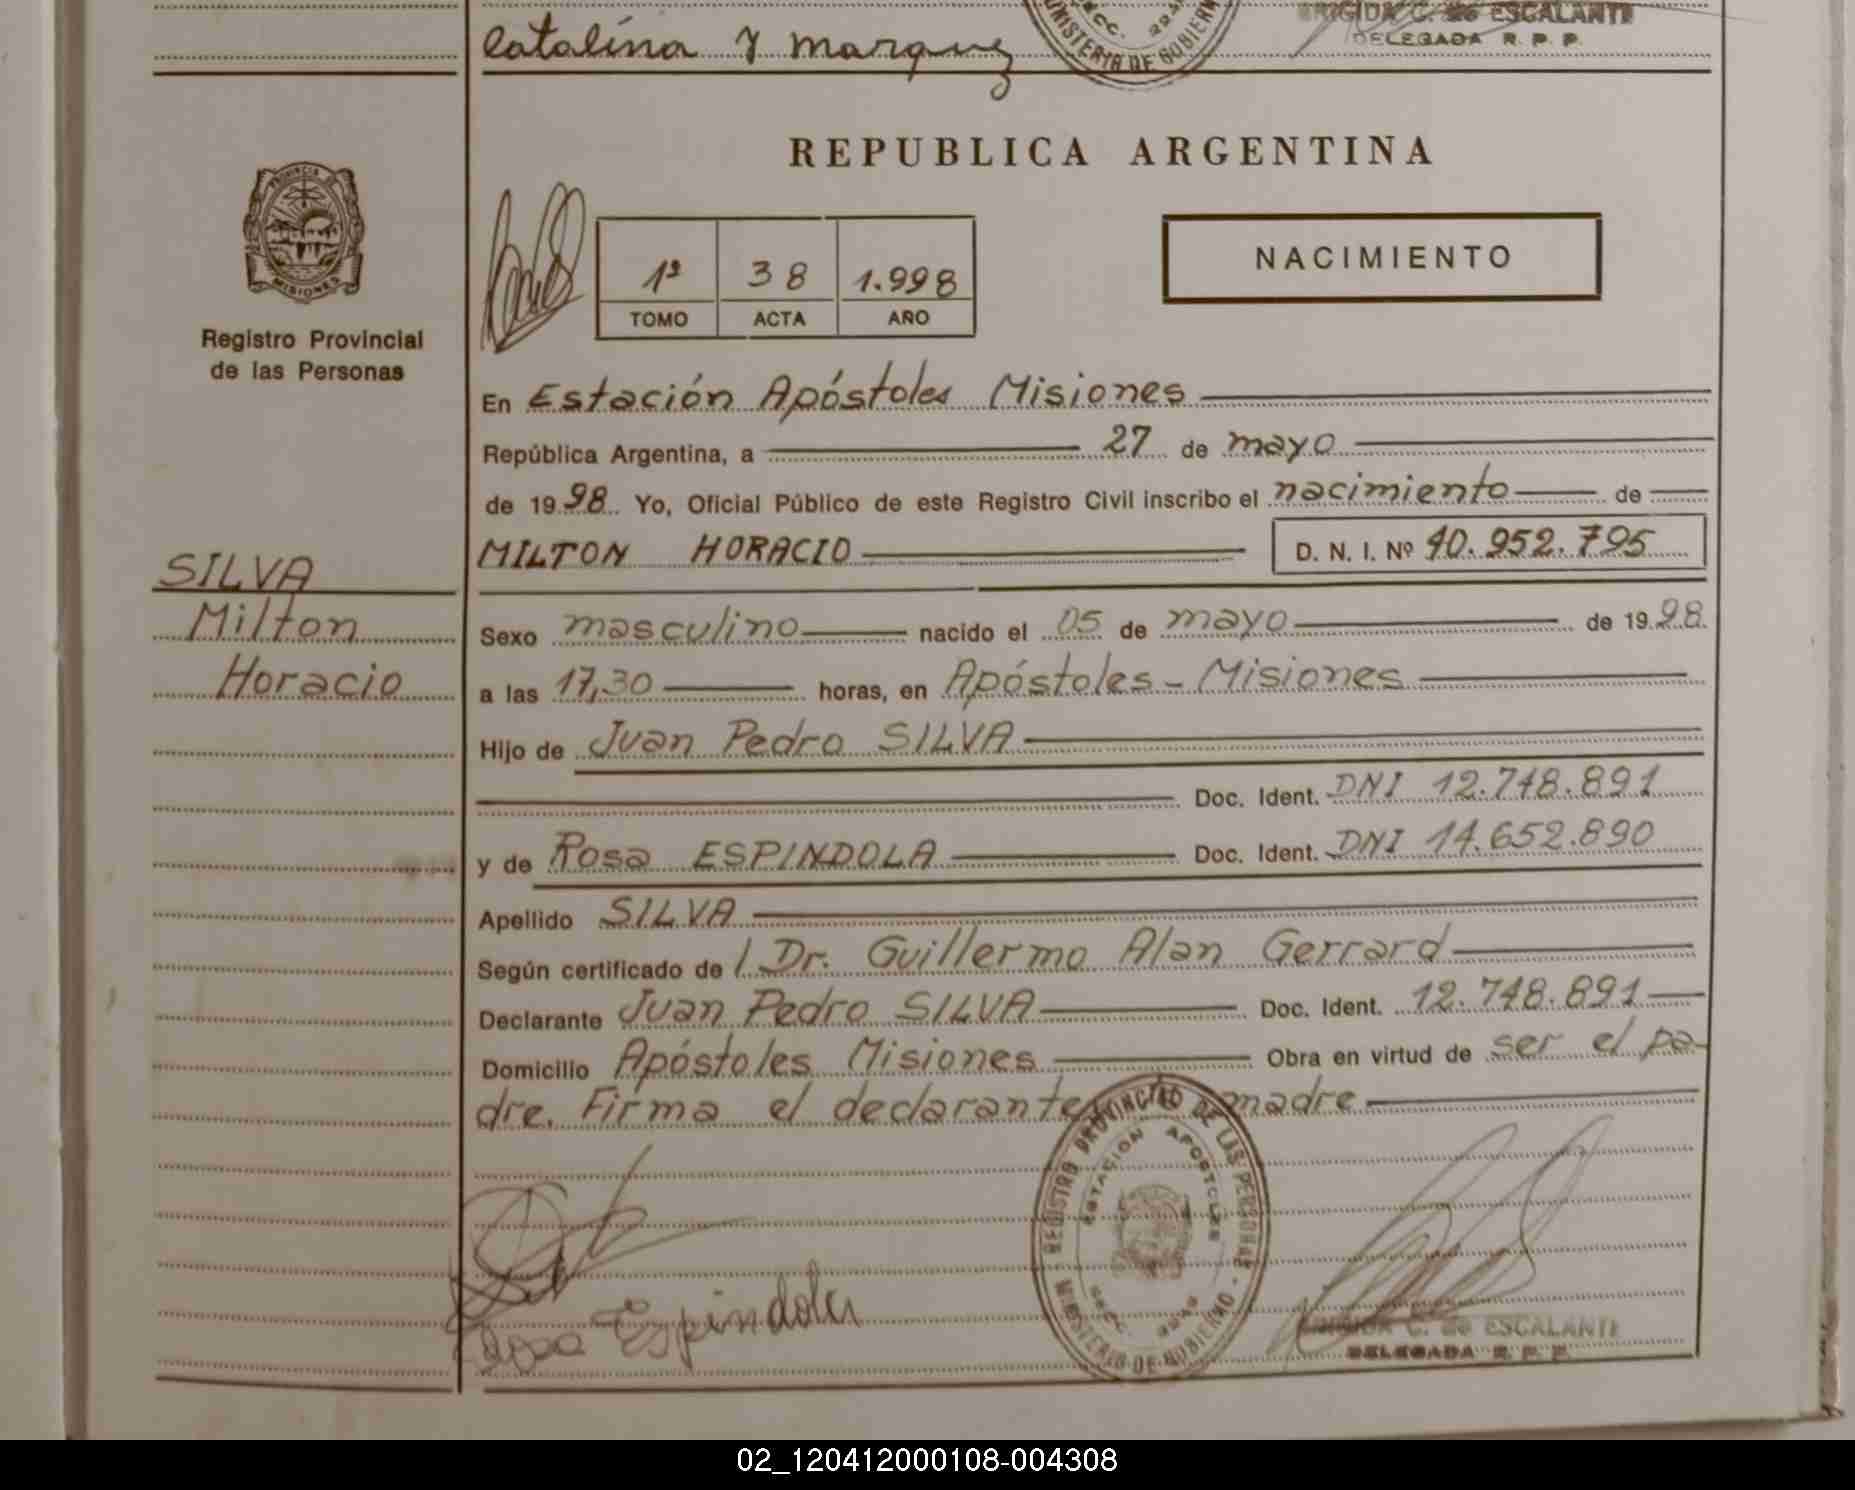 BRIGIDA C. de ESCALANTE
DELEGADA R. P. P.
Catalina Y Marquez
SECC.
MINISTERIO DE GOBIERNO
REPUBLICA ARGENTINA
PROVINCIA DE
MISIONES
Registro Provincial
de las Personas
1º 38 1.998
TOMO ACTA AÑO
NACIMIENTO
En Estación Apóstoles Misiones
República Argentina, a 27 de mayo
de 1998 Yo, Oficial Público de este Registro Civil inscribo el nacimiento de
MILTON HORACIO D. N. I. Nº 40.952.795
SILVA
Milton
Horacio
Sexo masculino nacido el 05 de mayo de 1998.
a las 17,30 horas, en Apóstoles - Misiones
Hijo de Juan Pedro SILVA
Doc. Ident. DNI 12.748.891
y de Rosa ESPINDOLA Doc. Ident. DNI 14.652.890
Apellido SILVA
Según certificado de / Dr. Guillermo Alan Gerrard
Declarante Juan Pedro SILVA Doc. Ident. 12.748.891
Domicilio Apóstoles Misiones Obra en virtud de ser el pa-
dre. Firma el declarante madre
REGISTRO PROVINCIAL DE LAS PERSONAS
ESTACION APOSTOLES
SECC.
MINISTERIO DE GOBIERNO
Rosa Espindola
BRIGIDA C. de ESCALANTE
DELEGADA R. P. P.
02_120412000108-004308